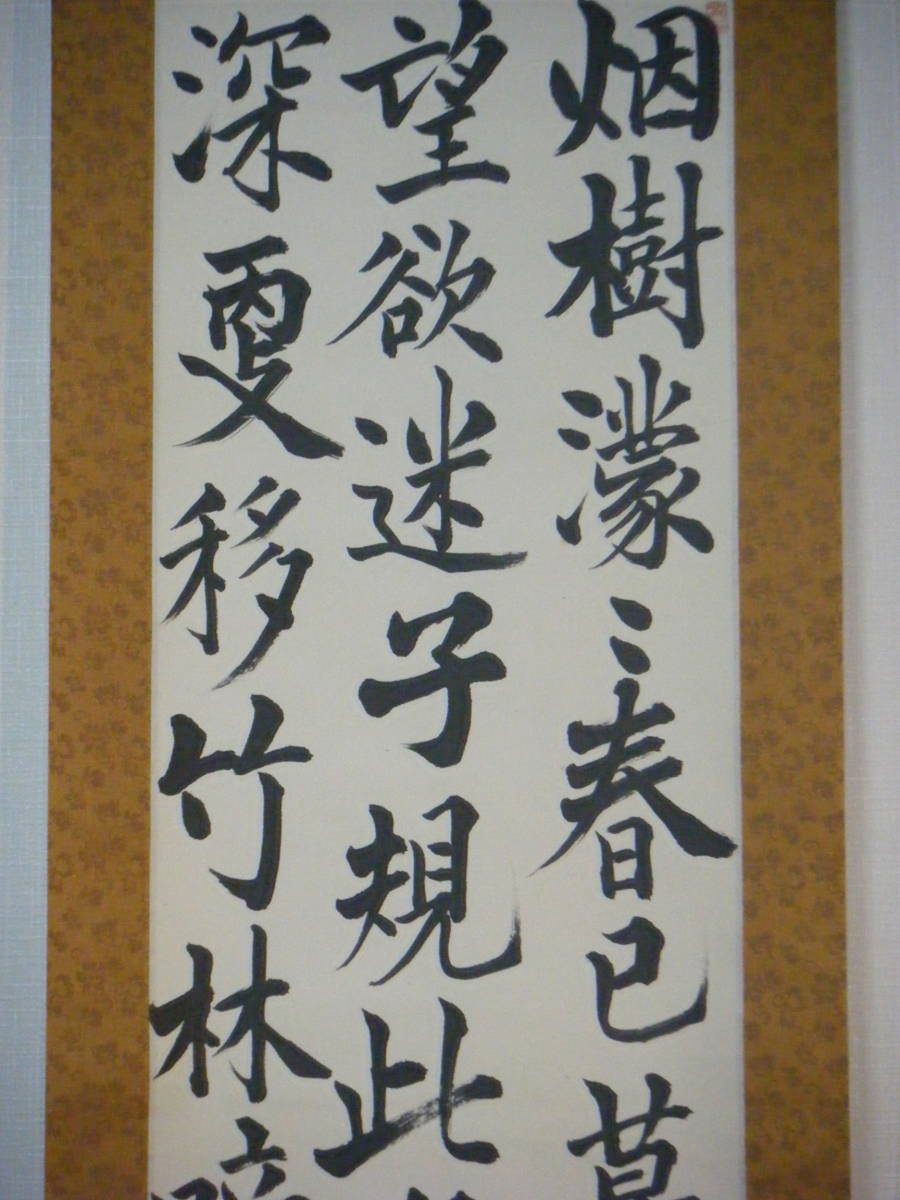 烟樹濛〻春已暮
望欲迷子規此
深更移竹林